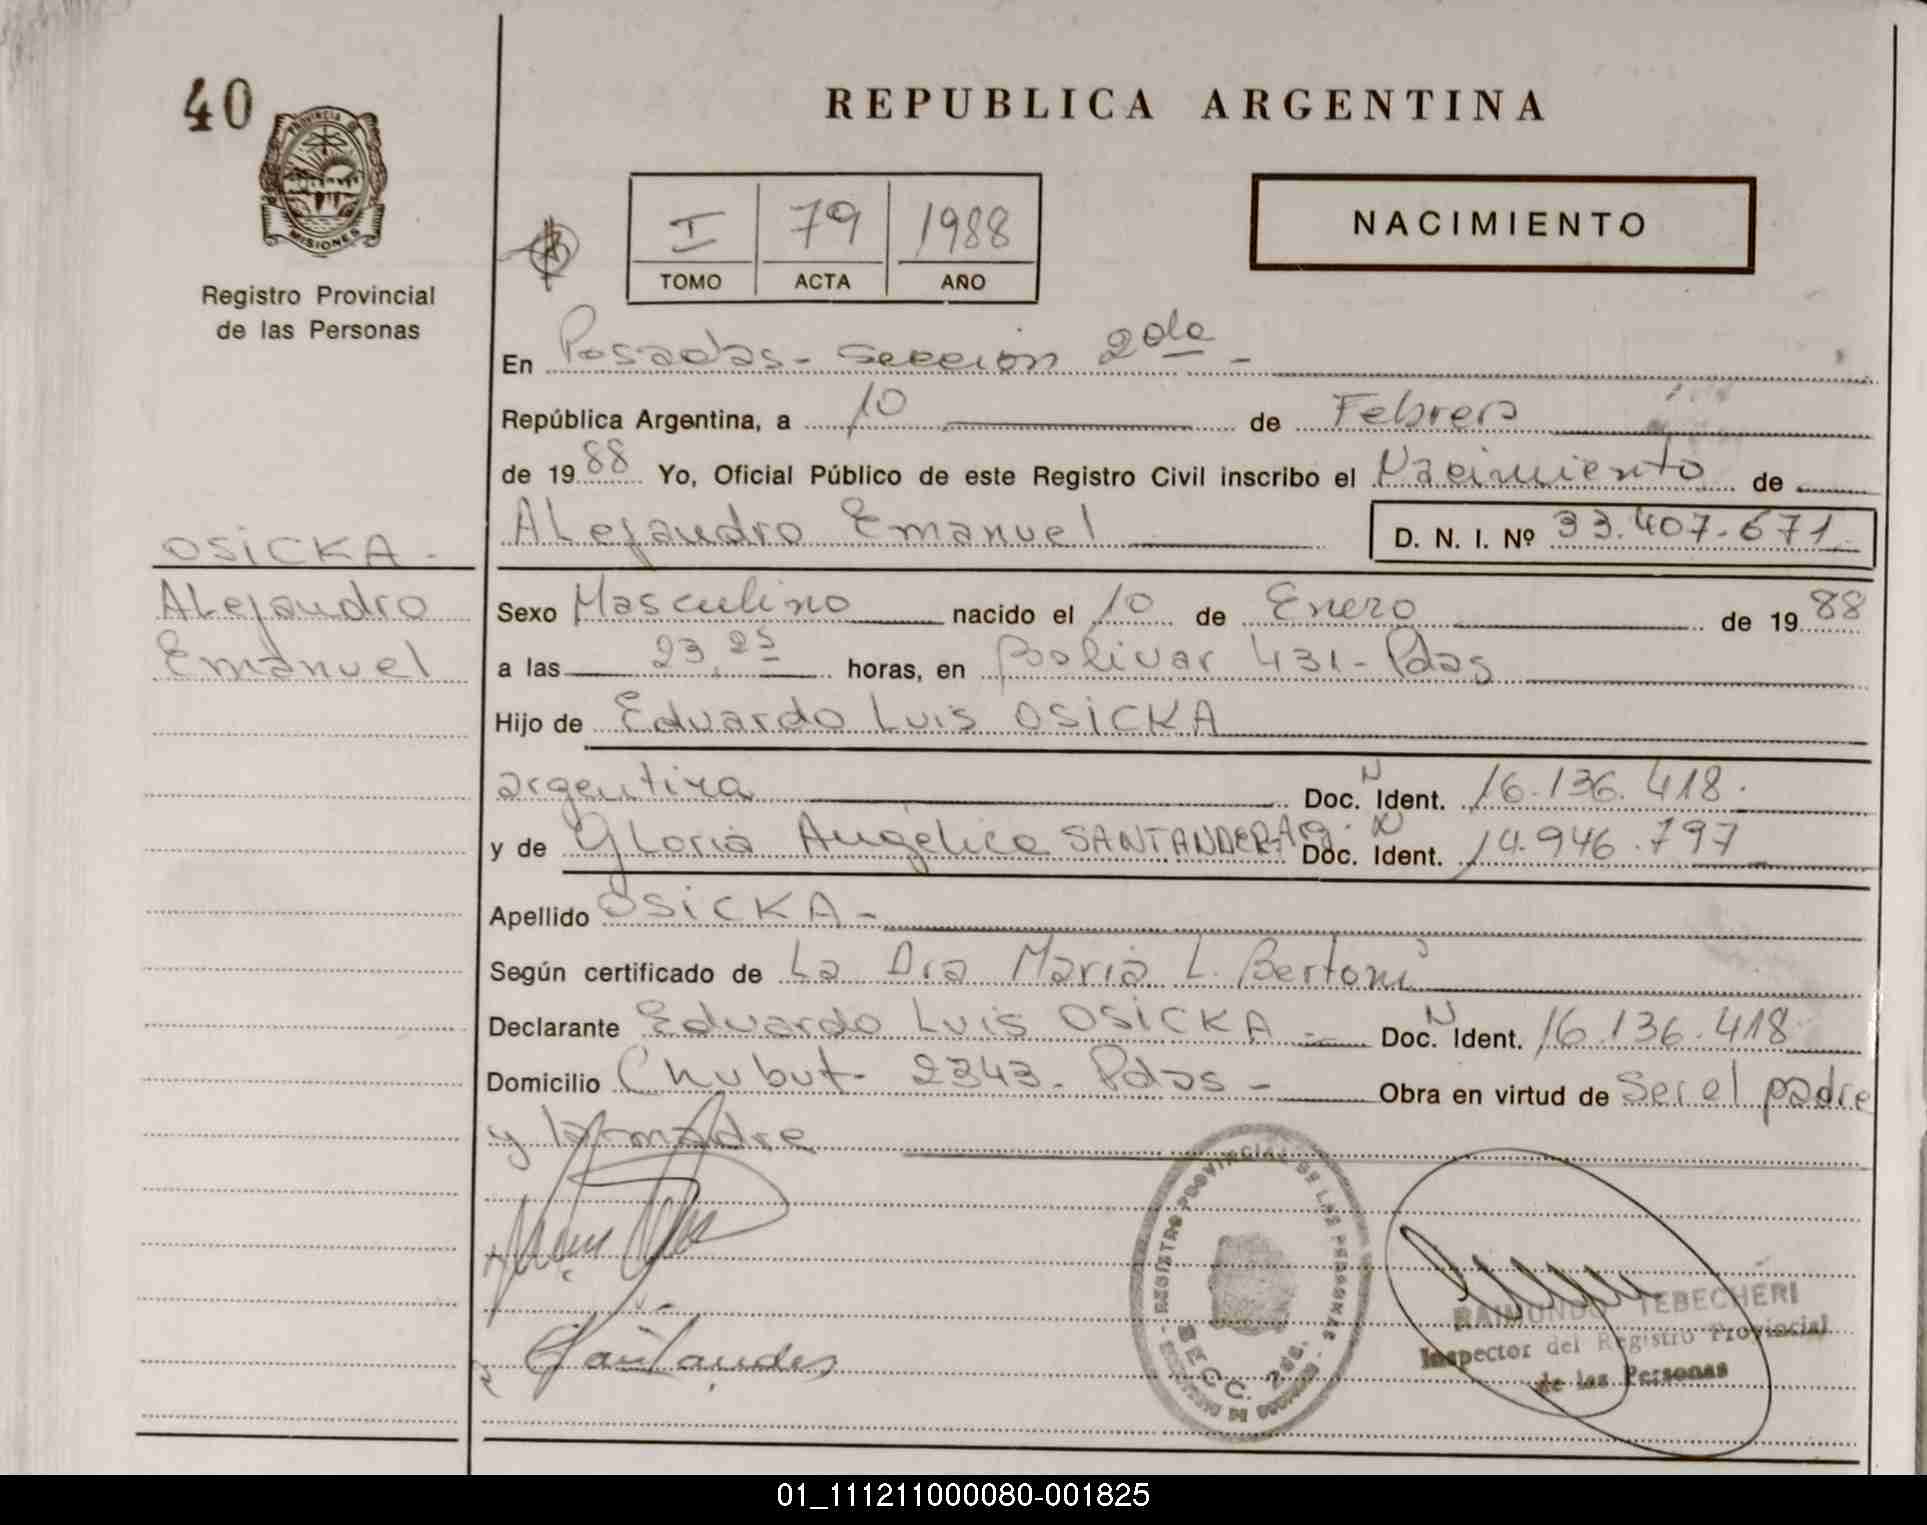 40
PROVINCIA DE
MISIONES
Registro Provincial
de las Personas
REPUBLICA ARGENTINA
I 79 1988
TOMO ACTA AÑO
NACIMIENTO
En Posadas - Sección 2da -
República Argentina, a 10 de Febrero
de 1988 Yo, Oficial Público de este Registro Civil inscribo el Nacimiento de
Alejandro Emanuel D. N. I. Nº 33.407.671
OSICKA -
Alejandro
Emanuel
Sexo Masculino nacido el 10 de Enero de 1988
a las 23,25 horas, en Bolivar 431 - Pdas
Hijo de Eduardo Luis OSICKA
argentina Doc. N Ident. 16.136.418.
y de Gloria Angélica SANTANDER Arg. Doc. N Ident. 14.946.797
Apellido OSICKA -
Según certificado de La Dra Maria L. Bertoni
Declarante Eduardo Luis OSICKA - Doc. N Ident. 16.136.418
Domicilio Chubut - 2343 - Pdas - Obra en virtud de Ser el padre
y la madre
REGISTRO PROVINCIAL DE LAS PERSONAS
SECC. 2da.
Santander
RAIMUNDO TEBECHERI
Inspector del Registro Provincial
de las Personas
01_111211000080-001825